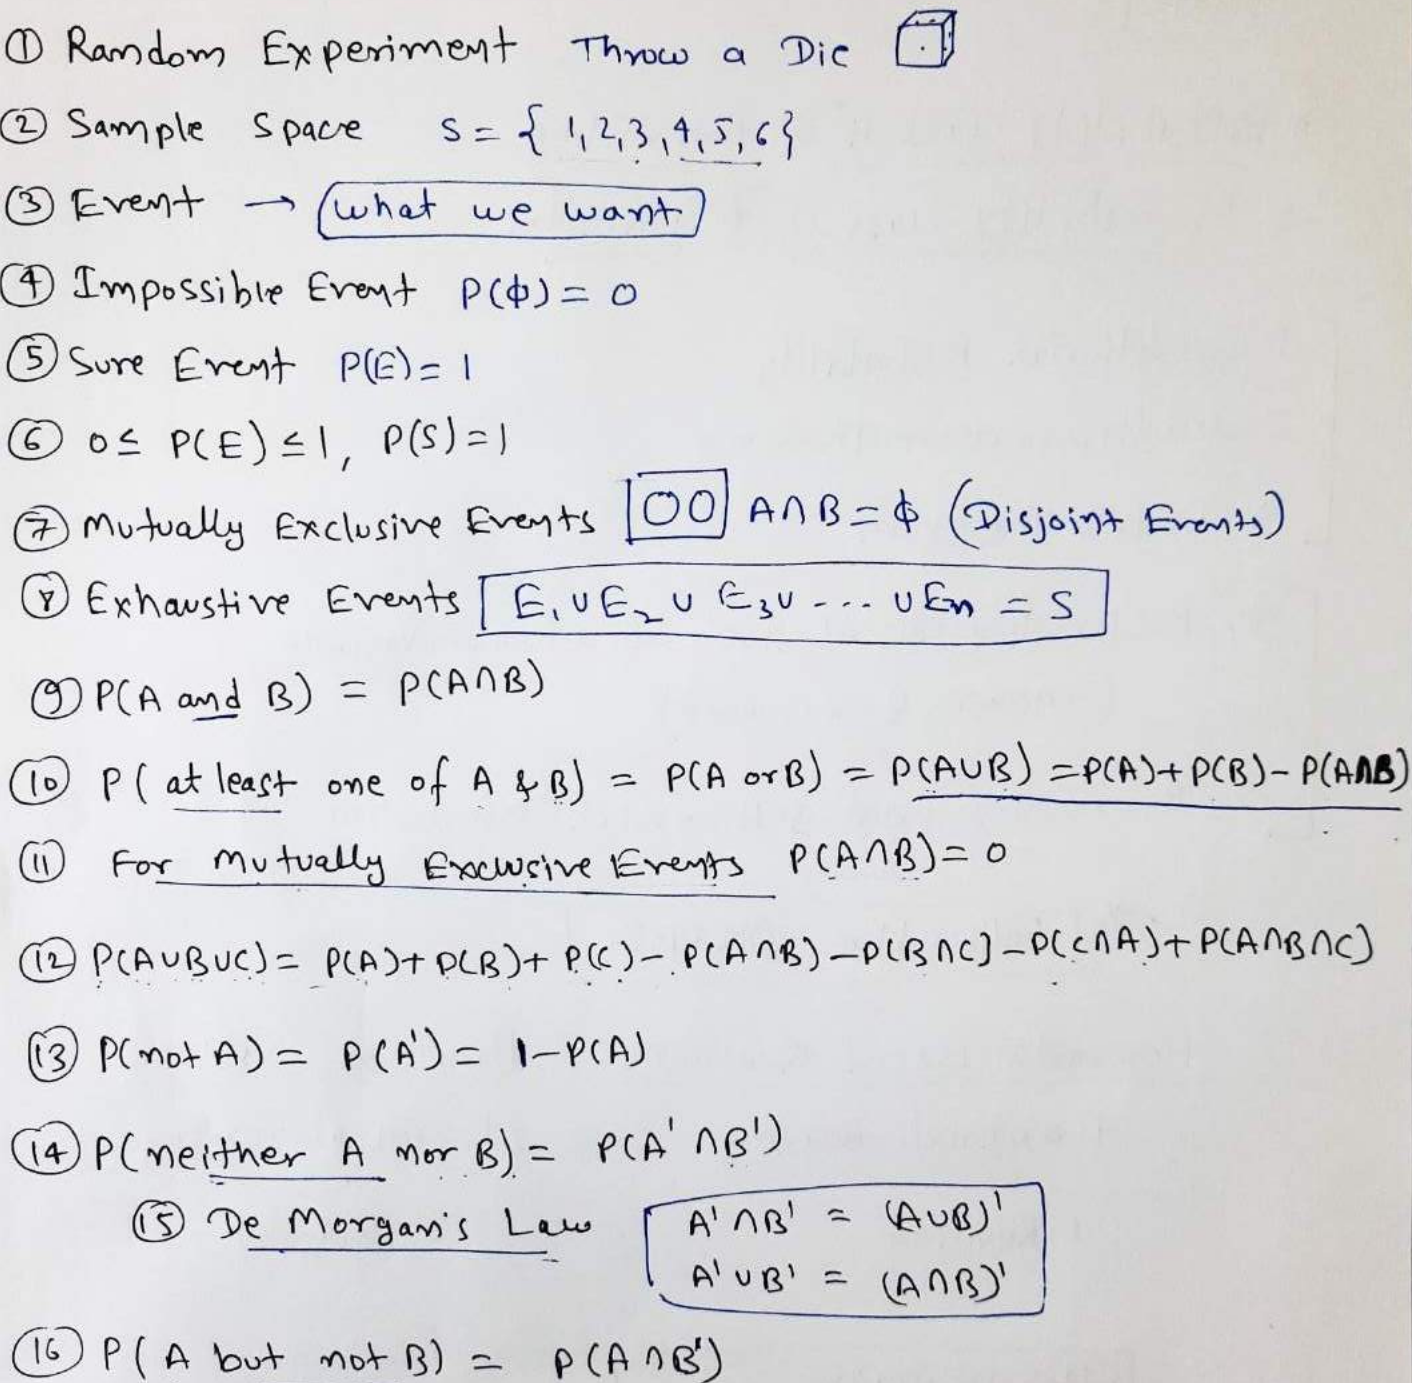 ① Random Experiment Throw a Die
② Sample Space S = { 1,2,3,4,5,6}
③ Event → what we want
④ Impossible Event P(ϕ) = 0
⑤ Sure Event P(E) = 1
⑥ 0 ≤ P(E) ≤ 1, P(S) = 1
⑦ Mutually Exclusive Events A∩B = ϕ (Disjoint Events)
⑧ Exhaustive Events E₁ ∪ E₂ ∪ E₃ ∪ - - - ∪ Eₙ = S
⑨ P(A and B) = P(A∩B)
⑩ P( at least one of A & B) = P(A or B) = P(A∪B) = P(A) + P(B) - P(A∩B)
⑪ For Mutually Exclusive Events P(A∩B) = 0
⑫ P(A∪B∪C) = P(A) + P(B) + P(C) - P(A∩B) - P(B∩C) - P(C∩A) + P(A∩B∩C)
⑬ P(not A) = P(A') = 1 - P(A)
⑭ P(neither A nor B) = P(A' ∩ B')
⑮ De Morgan's Law A' ∩ B' = (A∪B)'
A' ∪ B' = (A∩B)'
⑯ P( A but not B) = P(A ∩ B')